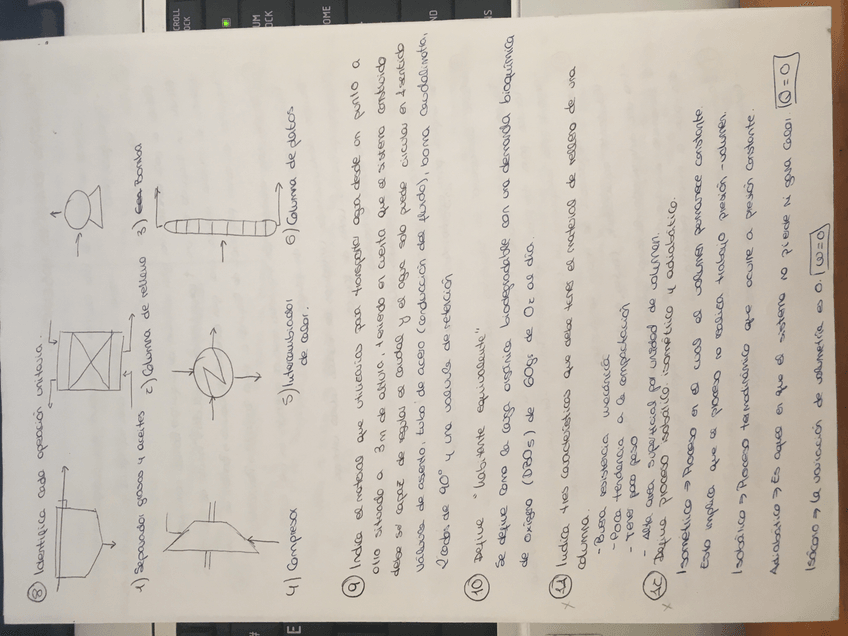 8 Identifica cada operación unitaria.
1) Separador grasas y aceites
2) Columna de relleno
3) Bomba
4) Compresor
5) Intercambiador
de calor.
6) Columna de platos
9 Indica el material que utilizarías para transportar agua desde un punto a
otro situado a 3 m de altura, teniendo en cuenta que el sistema construido
debe ser capaz de regular el caudal y el agua solo puede circular en 1 sentido
Válvula de asiento, tubo de acero (conducción del fluido), bomba, caudalímetro,
2 codos de 90° y una válvula de retención
10 Define "habitante equivalente"
Se define como la carga orgánica biodegradable con una demanda bioquímica
de oxígeno (DBO5) de 60gr de O2 al día.
x 11 Indica tres características que debe tener el material de relleno de una
columna.
- Buena resistencia mecánica
- Poca tendencia a la compactación
- Tener poco peso
- Alta área superficial por unidad de volumen.
x 12 Define proceso isobárico, isométrico y adiabático.
Isométrico → Proceso en el cual el volumen permanece constante.
Esto implica que el proceso no realiza trabajo presión-volumen.
Isobárico → Proceso termodinámico que ocurre a presión constante.
Adiabático → Es aquel en que el sistema no pierde ni gana calor. Q=0
Isócoro → la variación de volumetría es 0. W=0
SCROLL
LOCK
UM
OCK
HOME
ND
E